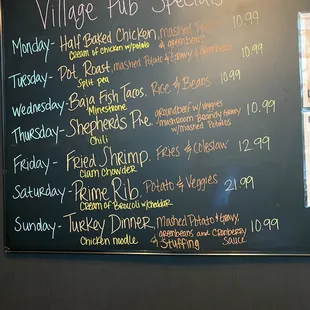 Village Pub Specials
Monday - Half Baked Chicken, mashed 10.99
Cream of Chicken w/potato & greenbeans
Tuesday - Pot Roast, mashed Potato & Gravy & Greenbeans 10.99
Split pea
Wednesday - Baja Fish Tacos. Rice & Beans 10.99
Minestrone
Thursday - Shepherds Pie. groundbeef w/ Veggies 10.99
mushroom Brandy Gravy
Chili w/mashed Potatos
Friday - Fried Shrimp. Fries & Coleslaw 12.99
Clam Chowder
Saturday - Prime Rib Potato & Veggies 21.99
Cream of Broccoli w/cheddar
Sunday - Turkey Dinner, mashed Potato & Gravy, 10.99
greenbeans and Cranberry
Chicken noodle & Stuffing Sauce